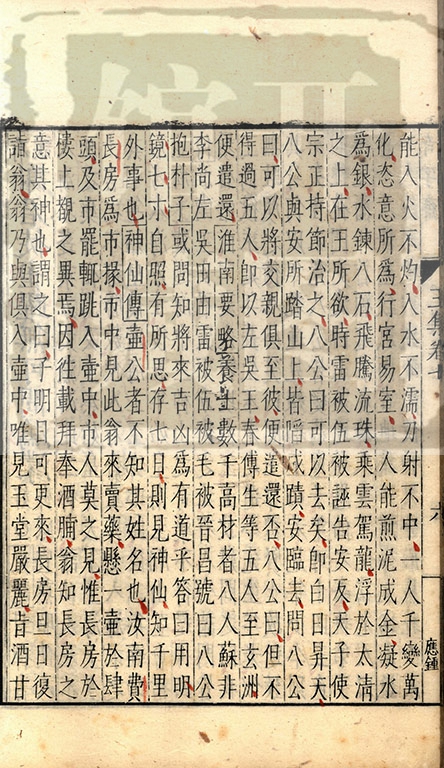 能入火不灼入水不濡刃射不中一人千變萬
化恣意所爲行宮易室一人能煎泥成金凝水
爲銀水鍊八石飛騰流珠乘雲駕龍浮於太清
之上在王所欲時雷被伍被誣告安反天子使
宗正持節治之八公曰可以去矣卽白日昇天
八公與安所踏山上皆陷成蹟安臨去問八公
曰可以將交親俱至彼便遣還否八公曰但不
得過五人卽以左吳王春傅生等五人至玄洲
便遣還淮南要略養士數千高材者八人蘇非
李尚左吳田由雷被伍被毛被晉昌號曰八公
抱朴子或問知將來吉凶爲有道乎答曰用明
鏡七寸自照有所思存七日則見神仙知千里
外事也神仙傳壺公者不知其姓名也汝南費
長房爲市掾市中見此翁來賣藥懸一壺於肆
頭及市罷輒跳入壺中市人莫之見惟長房於
樓上覩之異焉因往載拜奉酒脯翁知長房之
意其神也謂之曰子明日可更來長房旦日復
詣翁翁乃與俱入壺中唯見玉堂嚴麗旨酒甘
應鍾